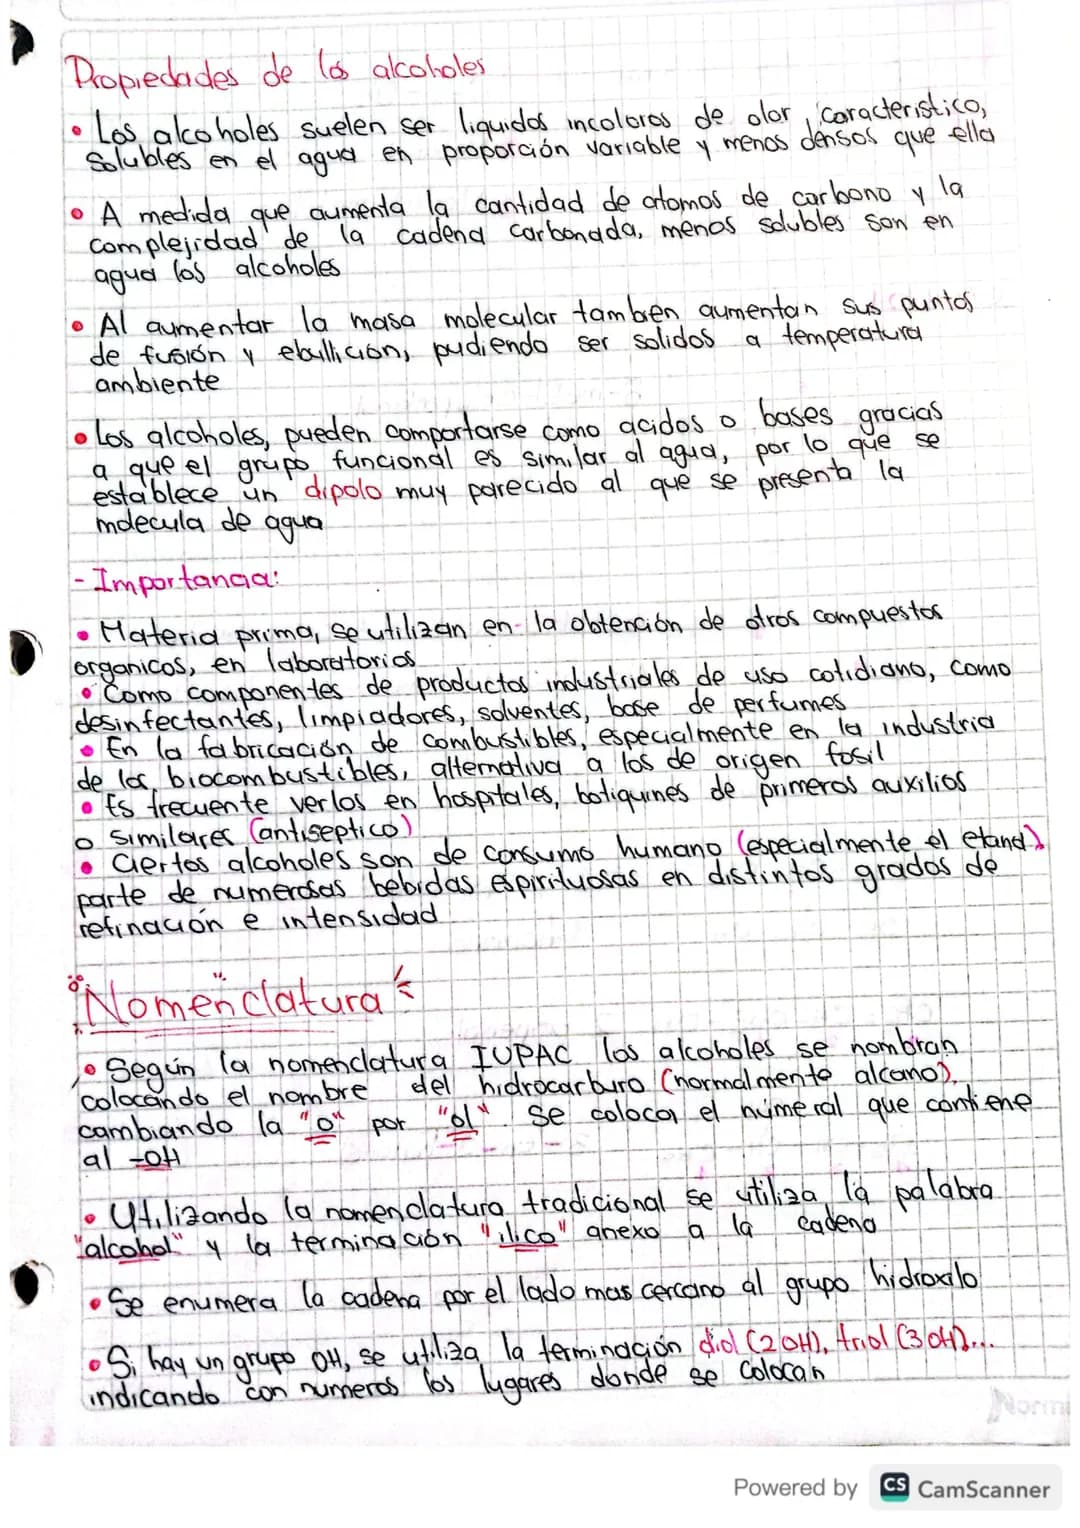 Propiedades de los alcoholes
• Los alcoholes suelen ser liquidos incoloros de olor caracteristico,
solubles en el agua en proporción variable y menos densos que ella
• A medida que aumenta la cantidad de atomos de carbono y la
complejidad de la cadena carbonada, menos solubles son en
agua los alcoholes
• Al aumentar la masa molecular tambien aumentan sus puntos
de fusión y ebullición, pudiendo ser solidos a temperatura
ambiente
• Los alcoholes, pueden comportarse como acidos o bases gracias
a que el grupo funcional es similar al agua, por lo que se
establece un dipolo muy parecido al que se presenta la
molecula de agua
- Importancia:
• Materia prima, se utilizan en la obtención de otros compuestos
organicos, en laboratorios
• Como componentes de productos industriales de uso cotidiano, como
desinfectantes, limpiadores, solventes, base de perfumes
• En la fabricación de combustibles, especialmente en la industria
de los biocombustibles, alternativa a los de origen fosil
• Es frecuente verlos en hospitales, botiquines de primeros auxilios
o similares (antiseptico)
• Ciertos alcoholes son de consumo humano (especialmente el etanol)
parte de numerosas bebidas espirituosas en distintos grados de
refinación e intensidad
Nomenclatura
• Según la nomenclatura IUPAC los alcoholes se nombran
colocando el nombre del hidrocarburo (normalmente alcano),
cambiando la "o" por "ol". Se coloca el numeral que contiene
al -OH
• Utilizando la nomenclatura tradicional se utiliza la palabra
"alcohol" y la terminación "ilico" anexo a la cadena
• Se enumera la cadena por el lado mas cercano al grupo hidroxilo
• Si hay un grupo OH, se utiliza la terminación diol (2OH), triol (3OH)...
indicando con numeros los lugares donde se colocan
Norm
Powered by CS CamScanner